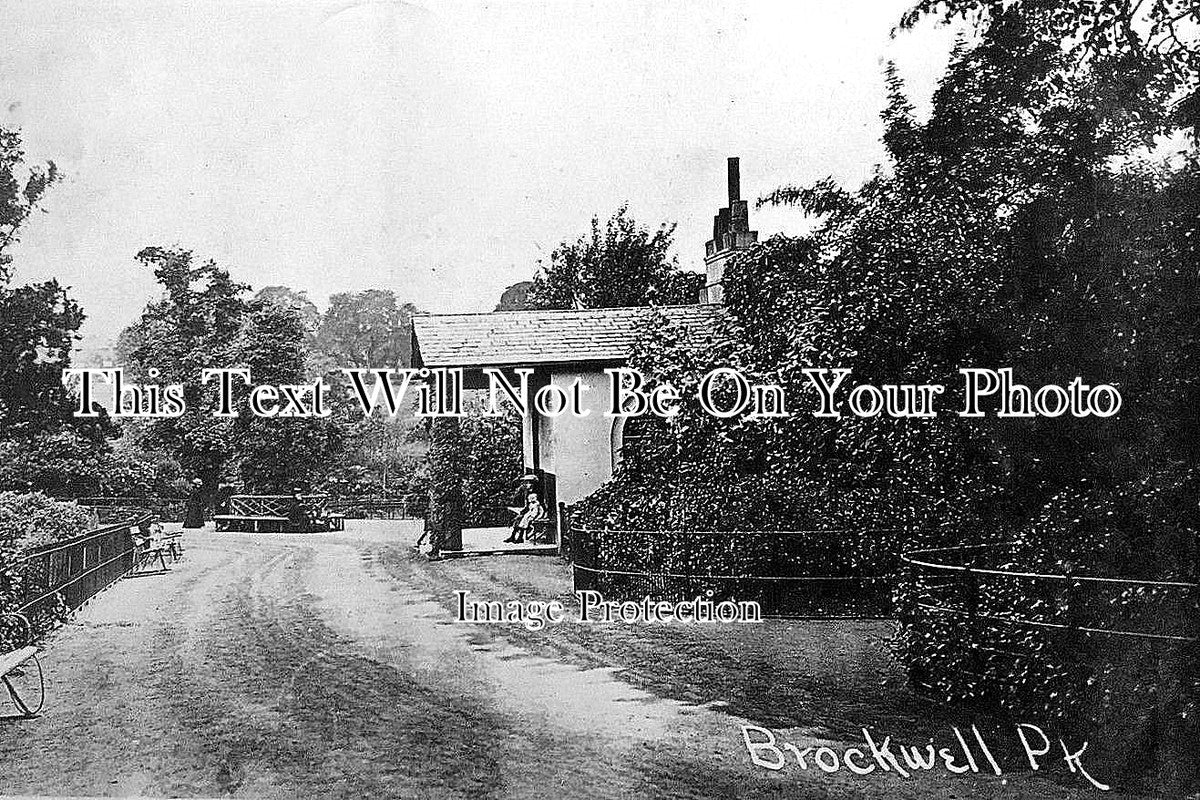 This Text Will Not Be On Your Photo
Image Protection
Brockwell Pk